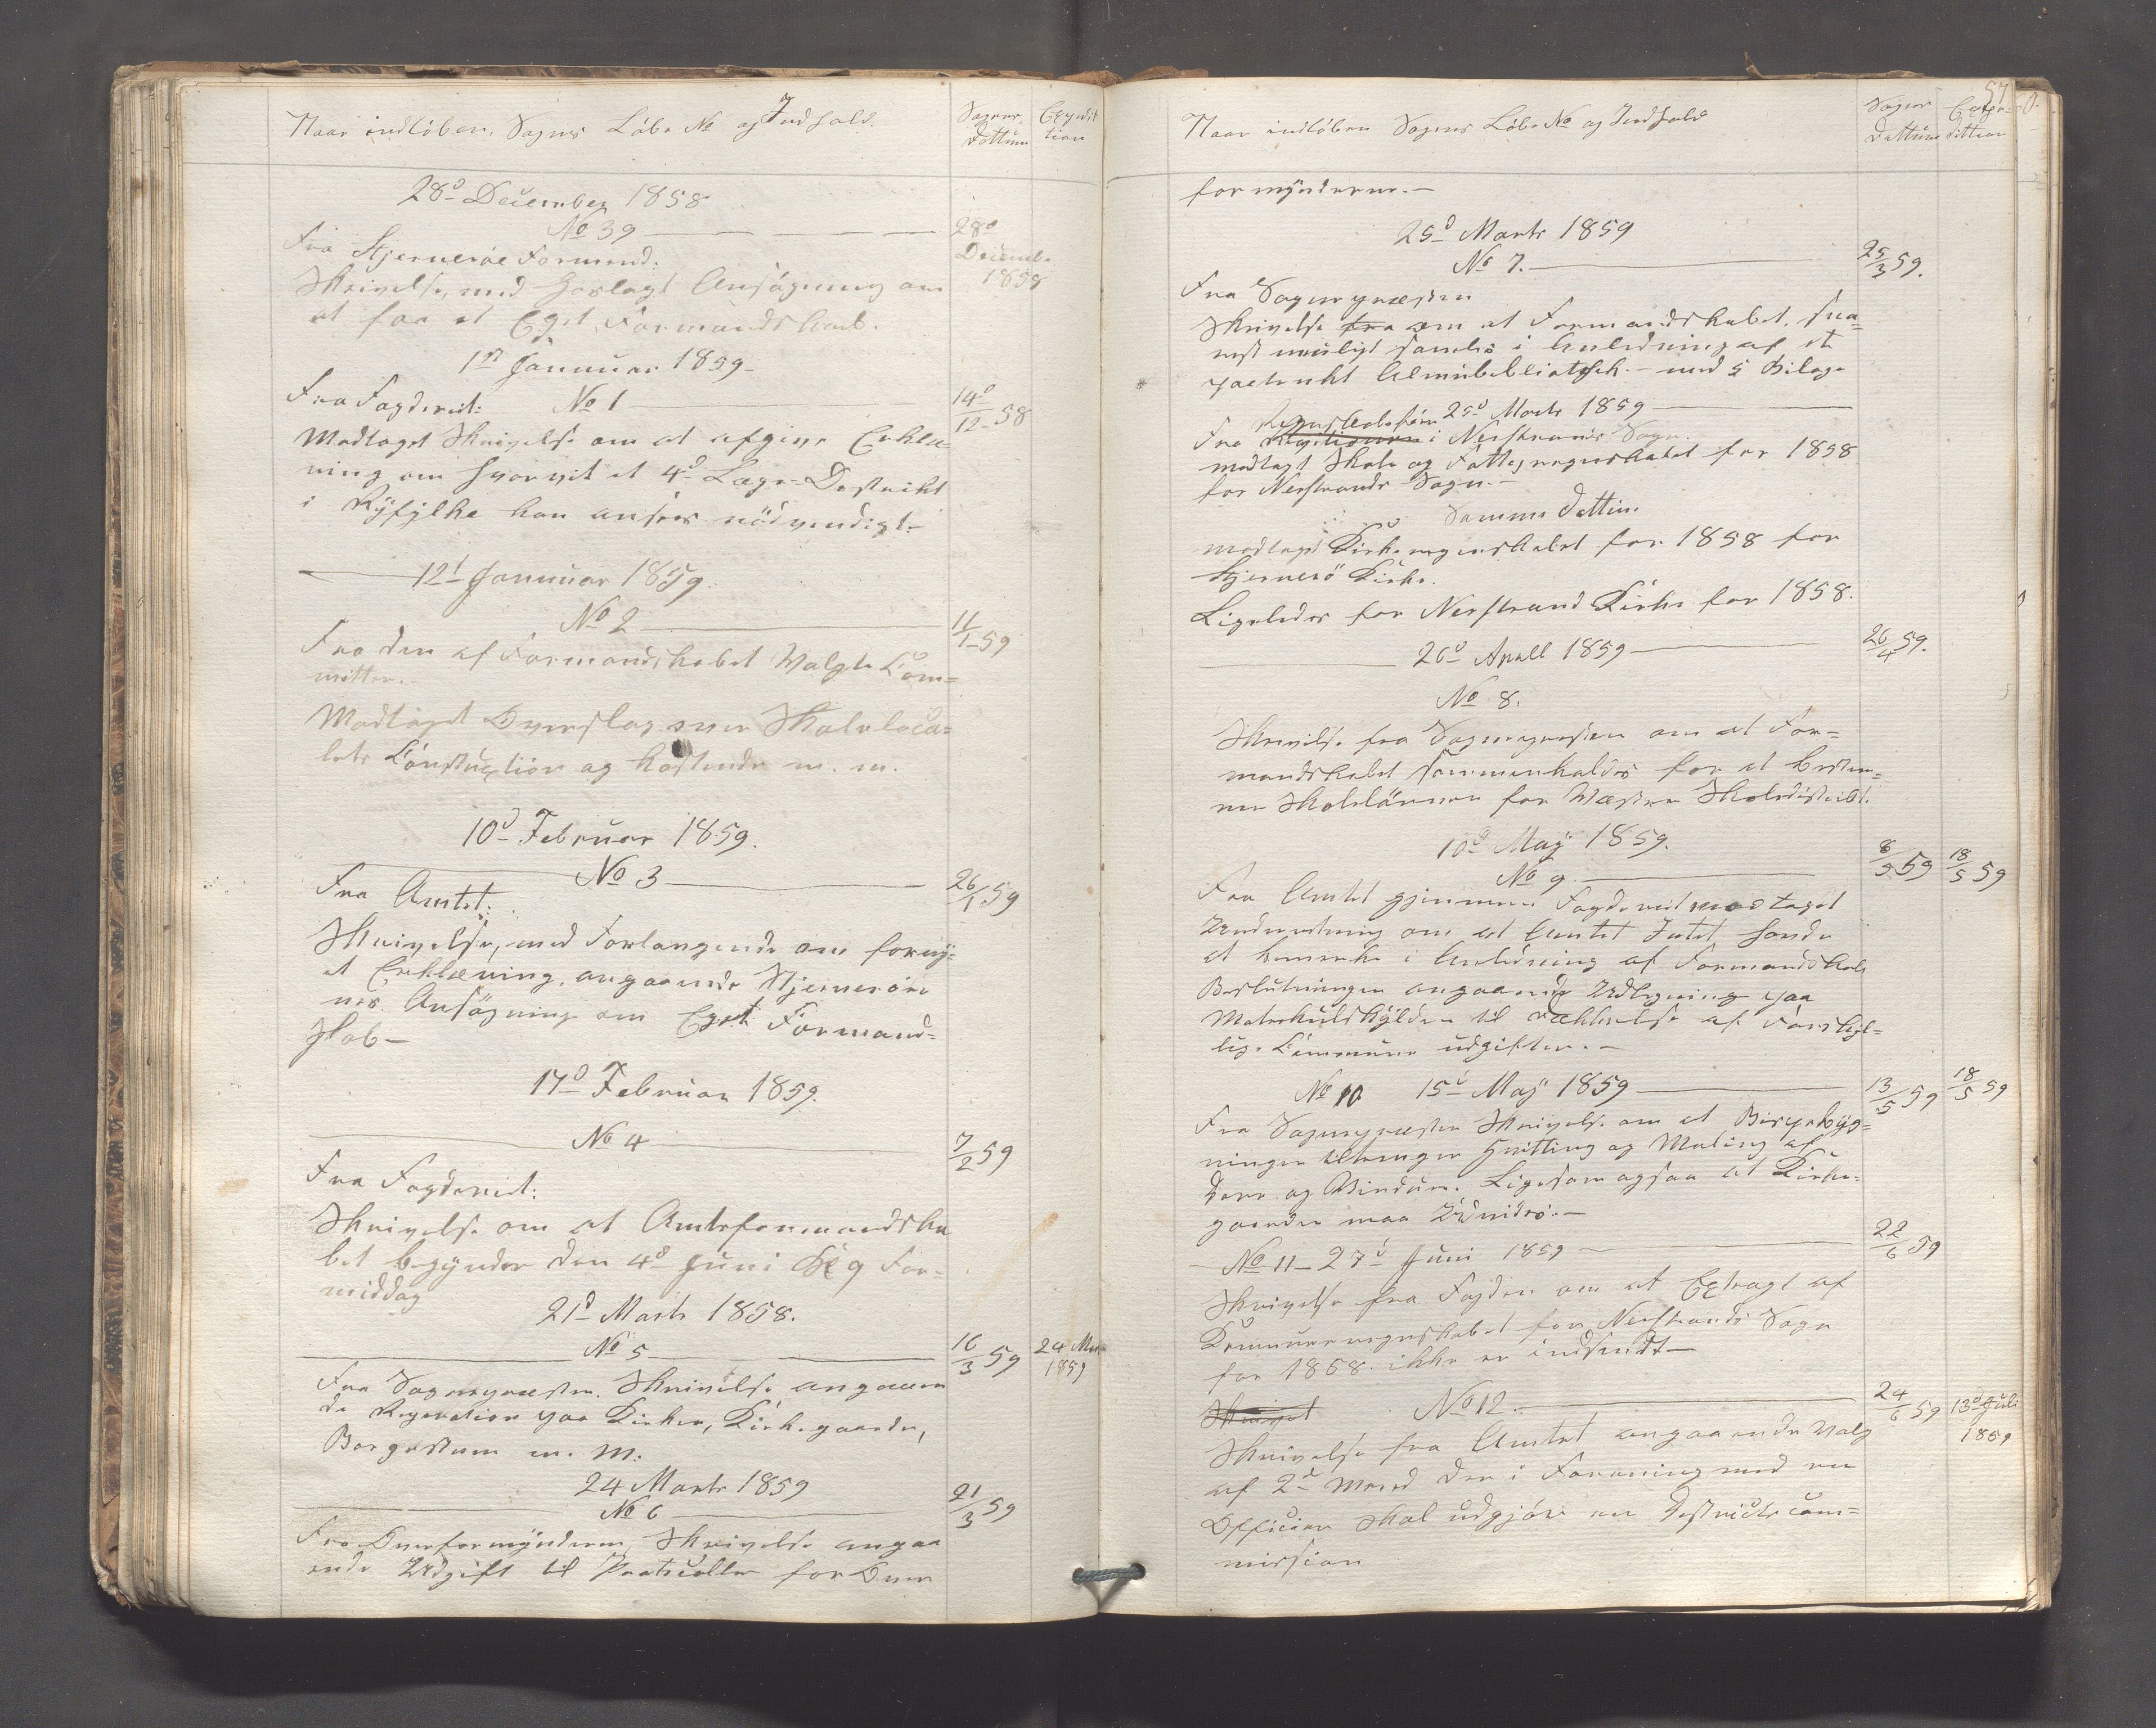 Naar indløben, Sagens Løbe No og Indhold.
Sagens Dattum
Expedittion
28d December 1858
No 39
28d Decemb. 1858
Fra Stjernerøe Formænd:
Skrivelse, med Forlagt Ansøgning om
at faa et Eget Formandskab.
1st Januar 1859
Fra Fogderiet: No 1
14d/12-58
Modtaget Skrivelse om at afgive Erklæ-
ring om hvorvit et 4d Læge-Destrikt
i Ryfylke kan ansees nødvendigt-
12t Januar 1859.
No 2
11/1-59
Fra den af Formandskabet Valgte Com-
mittee.-
Modtaget Overslag over Skoleloca-
lets Constuction og kostende m. m.
10d Februar 1859.
No 3
26/1 59
Fra Amtet:
Skrivelse, med Forlangende om forny-
et Erklæring, angaaende Stjernerøe
nes Ansøgning om Eget Formand-
skab-
17d Februar 1859.
No 4
7/2 59
Fra Fogderiet:
Skrivelse om at Amtsformandska
bet begynder den 4d Juni Kl 9 For-
middag
21d Marts 1858.
No 5
16/3 59
24 Mar 1859
Fra Sognepræsten. Skrivelse angaaen
de Reperation paa Kirker, Kirkegaarde,
Borgestuen m. M:
24 Marts 1859
No 6
21/3 59
Fra Overformynderen, Skrivelse angaa
ende Udgift til Protocoller for Over
57
Naar indløben Sagens Løbe No og Indhold
Sagens Dattum
Expedittion
formynderne.-
25d Marts 1859
No 7.
25/3 59.
Fra Sognepræsten
Skrivelse fra om at Formandskabet, sna-
rest muligt samles i Anledning af et
paatænkt Almubibliothek.- med 5 Bilage
25d Marts 1859
Fra Regnskabsfører i Nerstrands Sogn.
modtagt Skole og Fattigregnskabet for 1858
for Nerstrands Sogn.-
Samme Dattum
modtaget Kirkeregnskabet for 1858 for
Stjernerö Kirke.
Ligeledes for Nerstrand Kirke for 1858.
26d Aprill 1859
26/4 59.
No 8.
Skrivelse fra Sognepresten om at For-
mandskabet sammenkaldes for at bestem-
me Skolelønnen for Væstre Skoledistrikt.
10d Maÿ 1859.
No 9
8/5 59
18/5 59
Fra Amtet gjennem Fogderiet modtaget
Underretning om at Amtet Intet havde
at bemerke i Anledning af Formandskab
Beslutningen angaaende Udligning paa
Matrikulskylden til Dækkelse af Forskjel-
lige Commune udgifter.-
No 10 15d Maj 1859
13/5 59
18/5 59
Fra Sognepræsten Skrivelse om at Bispebyg-
ningen tiltrenger Kvitting og Maling af
Døre og Vinduer. Ligesom ogsaa at Kirke-
gaarden maa Udvides.-
No 11 - 27d Juni 1859
22/6 59
Skrivelse fra Fogden om at Extragt af
Kommuneregnskabet for Nerstrands Sogn
for 1858. ikke er indsendt-
Skrivel No 12.
24/6 59
13d Juli 1859
Skrivelse fra Amtet angaaende Valg
af 2d Mænd der i Forening med en
Officier skal udgjøre en Destricts com-
mission